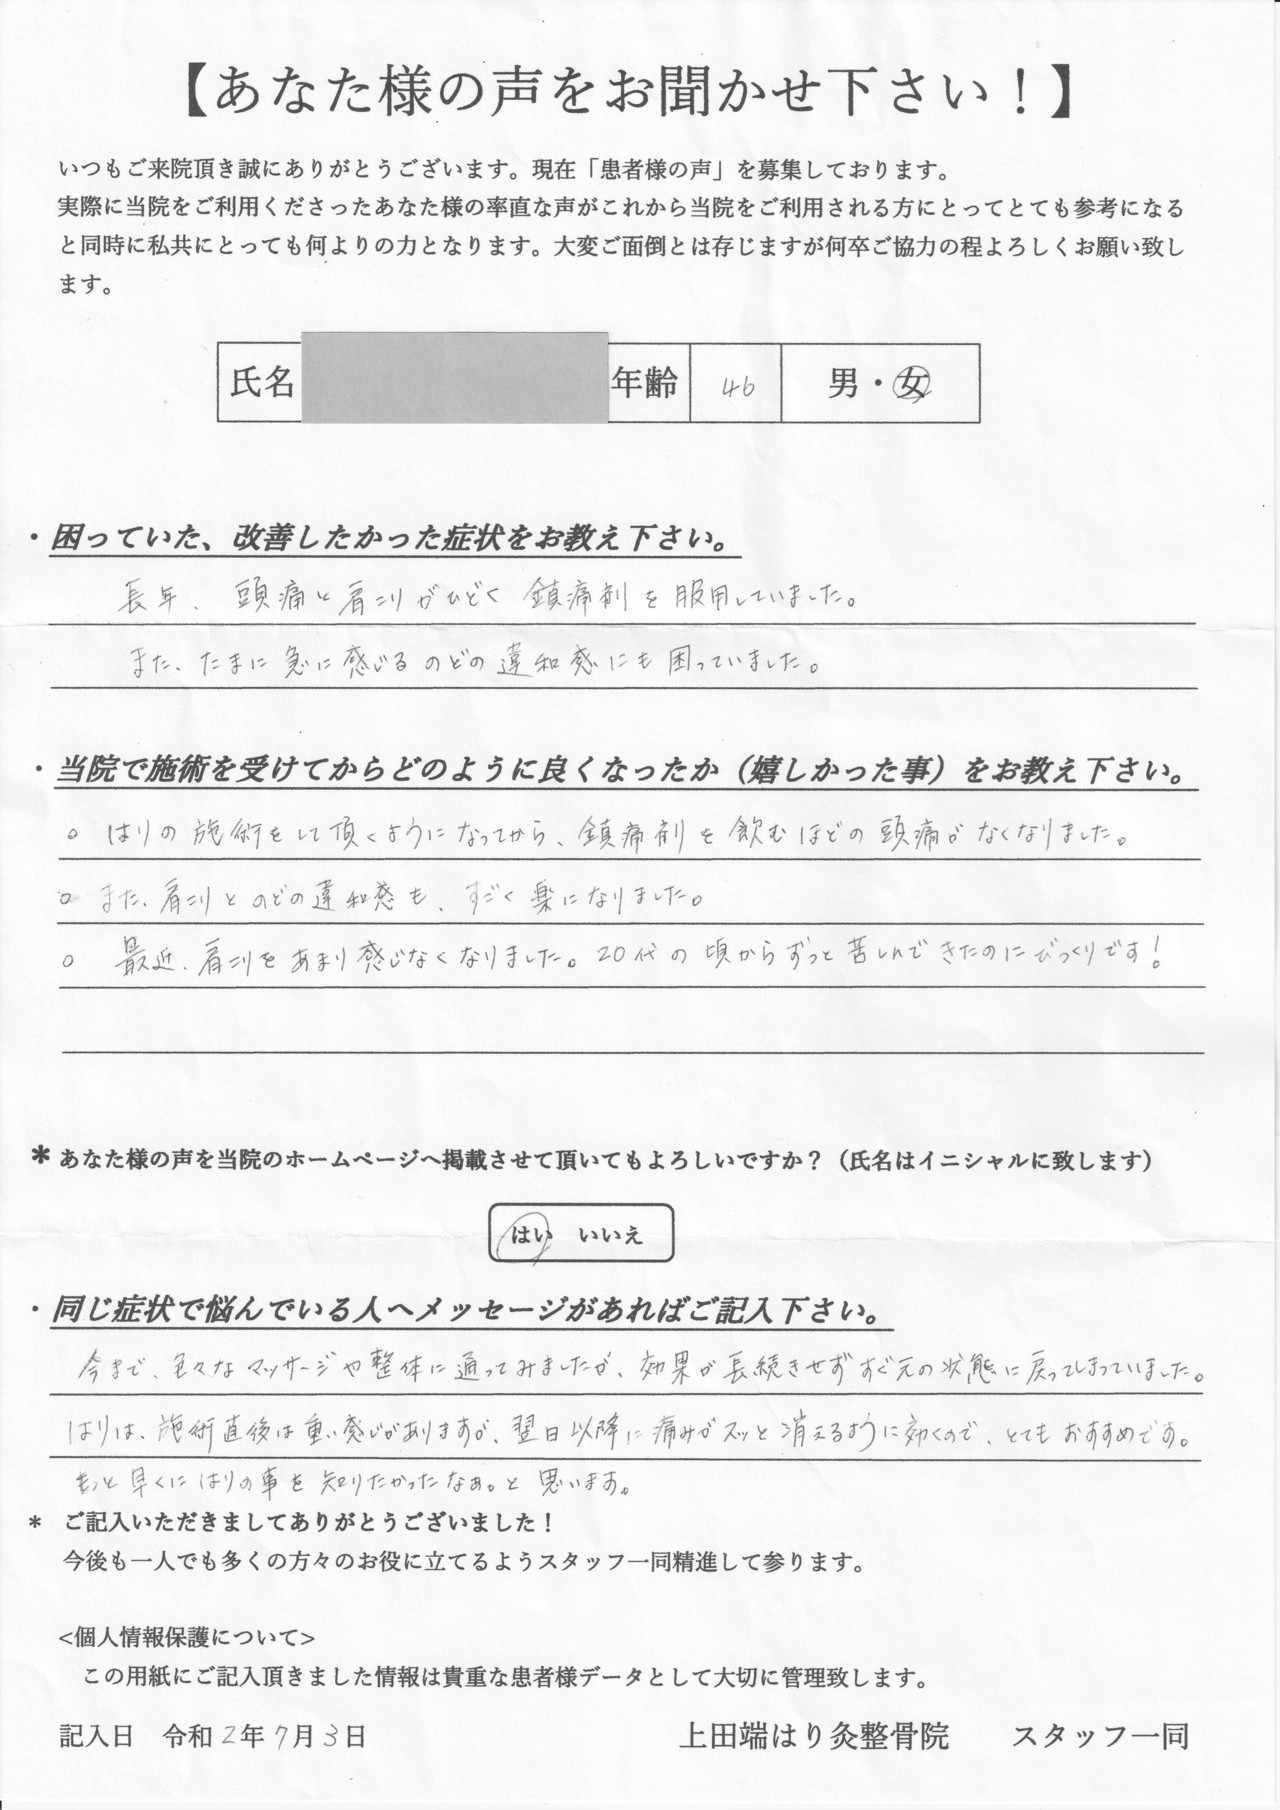 【あなた様の声をお聞かせ下さい！】
いつもご来院頂き誠にありがとうございます。現在「患者様の声」を募集しております。
実際に当院をご利用くださったあなた様の率直な声がこれから当院をご利用される方にとってとても参考になる
と同時に私共にとっても何よりの力となります。大変ご面倒とは存じますが何卒ご協力の程よろしくお願い致し
ます。
氏名 年齢 46 男・女
・困っていた、改善したかった症状をお教え下さい。
長年、頭痛と肩こりがひどく鎮痛剤を服用していました。
また、たまに急に感じるのどの違和感にも困っていました。
・当院で施術を受けてからどのように良くなったか（嬉しかった事）をお教え下さい。
○ はりの施術をして頂くようになってから、鎮痛剤を飲むほどの頭痛がなくなりました。
○ また、肩こりとのどの違和感も、すごく楽になりました。
○ 最近、肩こりをあまり感じなくなりました。20代の頃からずっと苦しんできたのにびっくりです！
＊あなた様の声を当院のホームページへ掲載させて頂いてもよろしいですか？（氏名はイニシャルに致します）
はい いいえ
・同じ症状で悩んでいる人へメッセージがあればご記入下さい。
今まで、色々なマッサージや整体に通ってみましたが、効果が長続きせずすぐ元の状態に戻ってしまっていました。
はりは、施術直後は重い感じがありますが、翌日以降に痛みがスッと消えるように効くので、とてもおすすめです。
もっと早くにはりの事を知りたかったなぁ。と思います。
＊ ご記入いただきましてありがとうございました！
今後も一人でも多くの方々のお役に立てるようスタッフ一同精進して参ります。
<個人情報保護について>
この用紙にご記入頂きました情報は貴重な患者様データとして大切に管理致します。
記入日 令和2年7月3日 上田端はり灸整骨院 スタッフ一同